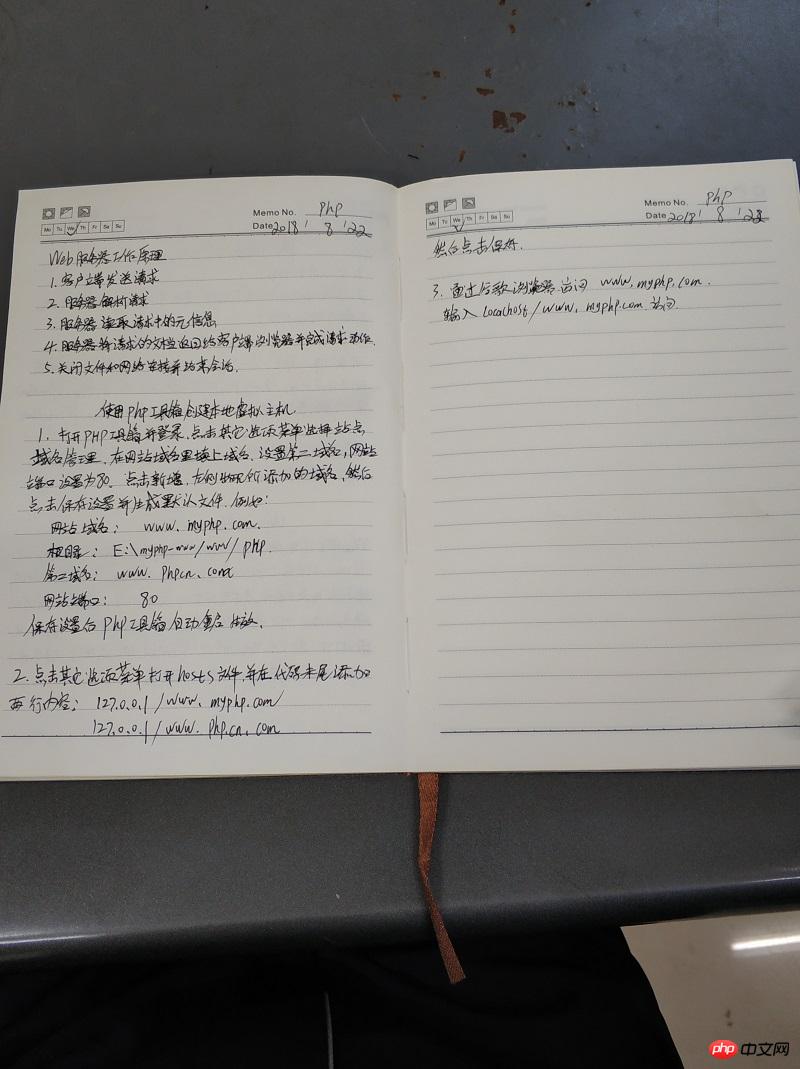 Memo No. php
Mo Tu We Th Fr Sa Su
Date 2018 / 8 / 22
Web服务器工作原理
1. 客户端发送请求
2. 服务器解析请求
3. 服务器读取请求中的元信息
4. 服务器将请求的文档返回给客户端浏览器并完成请求动作.
5. 关闭文件和网络连接并结束会话.
使用php工具箱创建本地虚拟主机
1. 打开PHP工具箱并登录. 点击其它选项菜单选择站点
域名管理. 在网站域名里填上域名. 设置第二域名, 网站
端口设置为80. 点击新增. 左侧出现所添加的域名, 然后
点击保存设置并生成默认文件. 例如:
网站域名: www. myphp. com.
根目录: E:\myphp-www/www/php.
第二域名: www. phpcn.
网站端口: 80
保存设置后php工具箱自动重启
2. 点击其它选项菜单打开hosts文件并在代码末尾添加
两行内容: 127.0.0.1/www. myphp. com/
127.0.0.1/www. php.cn. com
Memo No. php
Mo Tu We Th Fr Sa Su
Date 2018 / 8 / 22
然后点击保存.
3. 通过任意浏览器访问 www. myphp. com.
输入 localhost/www. myphp.com 访问.
php中文网